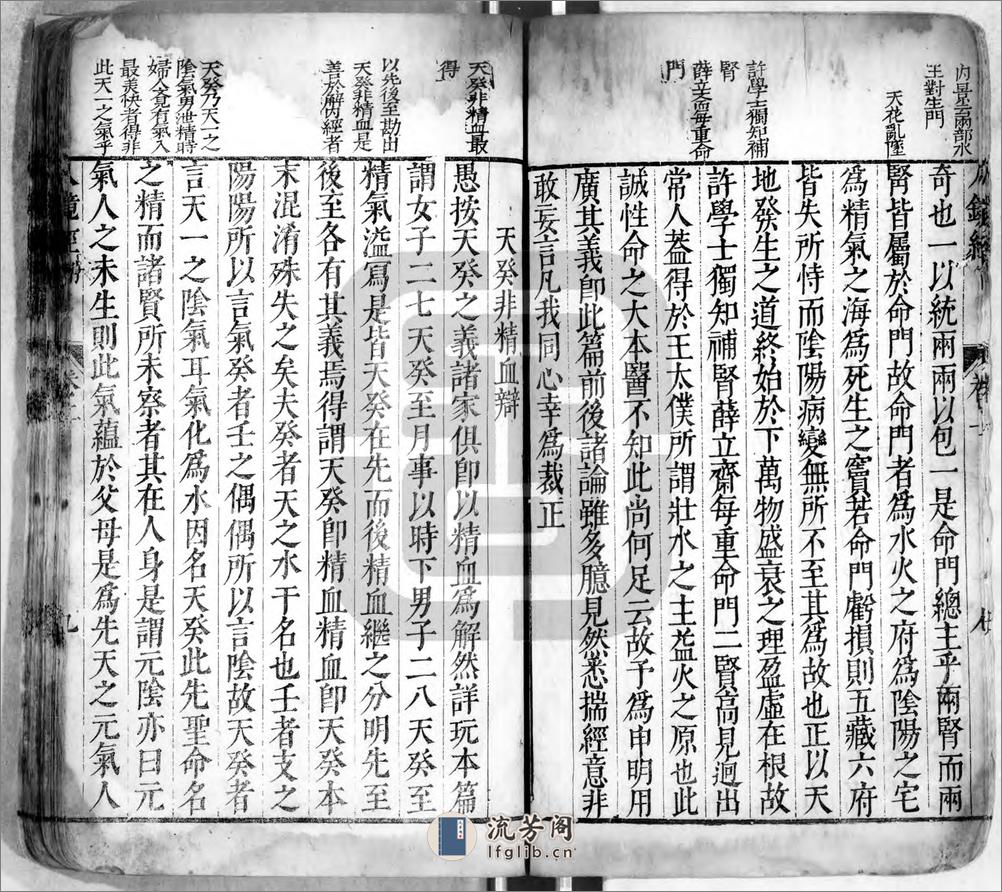 內景云兩部水
王對生門
天花亂墜
許學士獨知補
腎
薛立齋每重命
門
奇也一以統兩兩以包一是命門總主乎兩腎而兩
腎皆屬於命門故命門者為水火之府為陰陽之宅
為精氣之海為死生之竇若命門虧損則五藏六府
皆失所恃而陰陽病變無所不至其為故也正以天
地發生之道終始於下萬物盛衰之理盈虛在根故
許學士獨知補腎薛立齋每重命門二賢高見迥出
常人蓋得於王太僕所謂壯水之主益火之原也此
誠性命之大本醫不知此尚何足云故予為申明用
廣其義即此篇前後諸論雖多臆見然悉揣經意非
敢妄言凡我同心幸為裁正
天癸非精血最
得
以先後至勘出
天癸非精血是
善於解內經者
天癸乃天一之
陰氣男泄精時
婦人竟有氣入
最美快者得非
此天一之氣乎
天癸非精血辯
愚按天癸之義諸家俱即以精血為解然詳玩本篇
謂女子二七天癸至月事以時下男子二八天癸至
精氣溢寫是皆天癸在先而後精血繼之分明先至
後至各有其義焉得謂天癸即精血精血即天癸本
末混淆殊失之矣夫癸者天之水干名也壬者支之
陽陽所以言氣癸者壬之偶偶所以言陰故天癸者
言天一之陰氣耳氣化為水因名天癸此先聖命名
之精而諸賢所未察者其在人身是謂元陰亦曰元
氣人之未生則此氣蘊於父母是為先天之元氣人
流芳閣
lfglib.cn